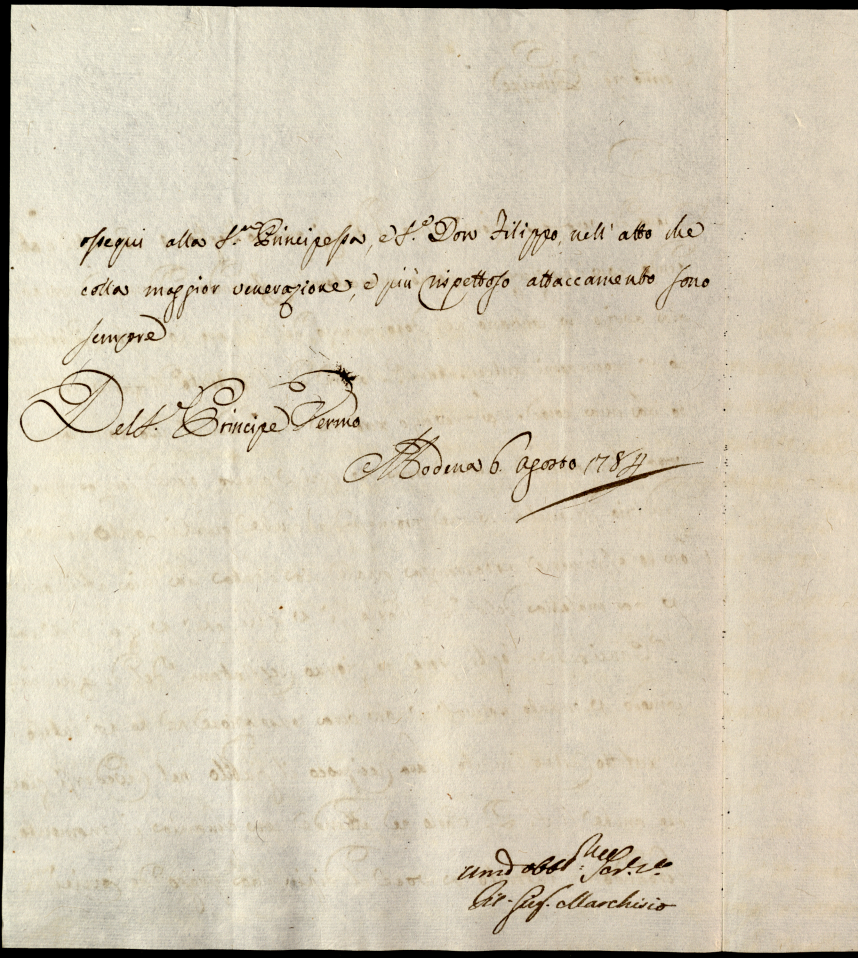 ossequi alla S.ra Principessa, e S.r Don Filippo, nell'atto che
colla maggior venerazione, e più rispettoso attaccamento sono
sempre
Del S.r Principe Fermo
Modena 6. Agosto 1784
Um.o obbl.
Marchisio